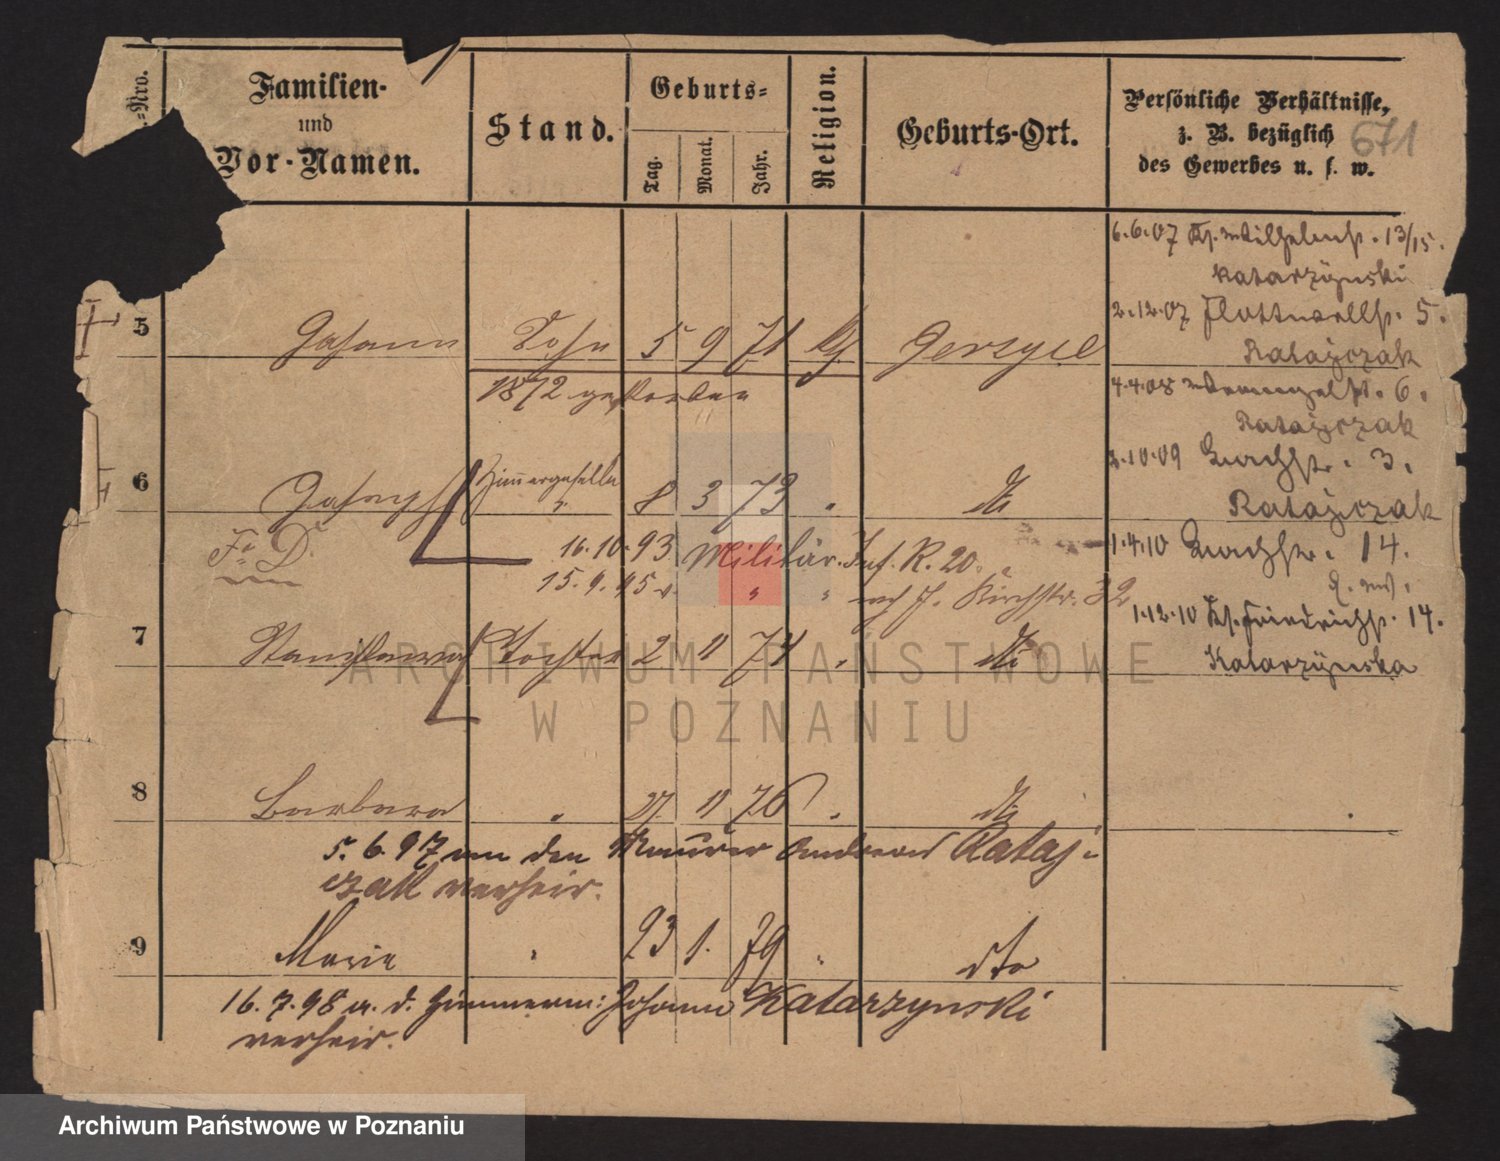 -Nro.
Familien-
und
Vor-Namen.
Stand.
Geburts-
Tag.
Monat.
Jahr.
Religion.
Geburts-Ort.
Persönliche Verhältnisse,
z. B. bezüglich
des Gewerbes u. s. w.
671
6.6.07 Kl. Wilhelmst. 13/15.
Katarzynski
2.12.07 Flottwellst. 5.
Ratajczak
5 Johann Sohn 5 9 71 Gersyce
1872 gestorben
4.4.08 Wrangelst. 6.
Ratajczak
2.10.09 3.
Ratajczak
6 Joseph Zimmergeselle 8 3 73 " dto
16.10.93 Militär. Inf. R. 20.
15.9.95 v. " " Kirchstr. 32
1.4.10 14.
1.12.10 Kl. Friedrichst. 14.
Katarzynska
7 Stanislawa Tochter 2 11 74 " dto
8 Barbara " 27 11 76 " dto
5.6.97 an den Maurer Andreas Rataj-
czak verheir.
9 Marie " 23 1. 79 " dto
16.7.98 a. d. Zimmerm: Johann Katarzynski
verheir.
ARCHIWUM PAŃSTWOWE
W POZNANIU
Archiwum Państwowe w Poznaniu